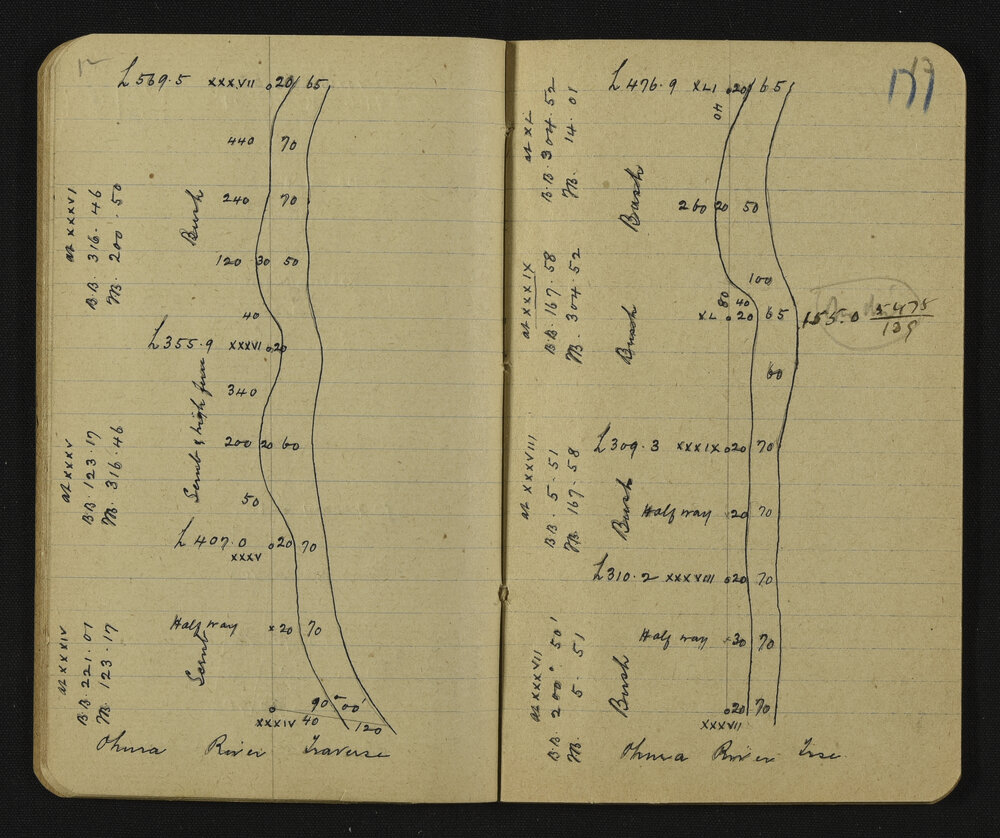 12
L 569.5 XXXVII 20 65
440 70
240 70
120 30 50
40
L 355.9 XXXVI 20
340
200 20 60
50
L 407.0 20 70
XXXV
Half way × 20 70
90° 00'
XXXIV 40 120
Bush
Scrub & high fern
Scrub
at XXXVI
B.B. 316.46
M. 200.50
at XXXV
B.B. 123.17
M. 316.46
at XXXIV
B.B. 221.01
M. 123.17
Ohura River Traverse
13
L 476.9 XLI 20 65
40
260 20 50
100
80 40
XL 20 65
155.0
60
L 309.3 XXXIX 20 70
Half way 20 70
L 310.2 XXXVIII 20 70
Half way 30 70
20 70
XXXVII
Bush
Bush
Bush
Bush
at XL
B.B. 304.52
M. 14.01
at XXXIX
B.B. 167.58
M. 304.52
at XXXVIII
B.B. 5.51
M. 167.58
at XXXVII
B.B. 200° 50'
M. 5.51
Ohura River Trse.